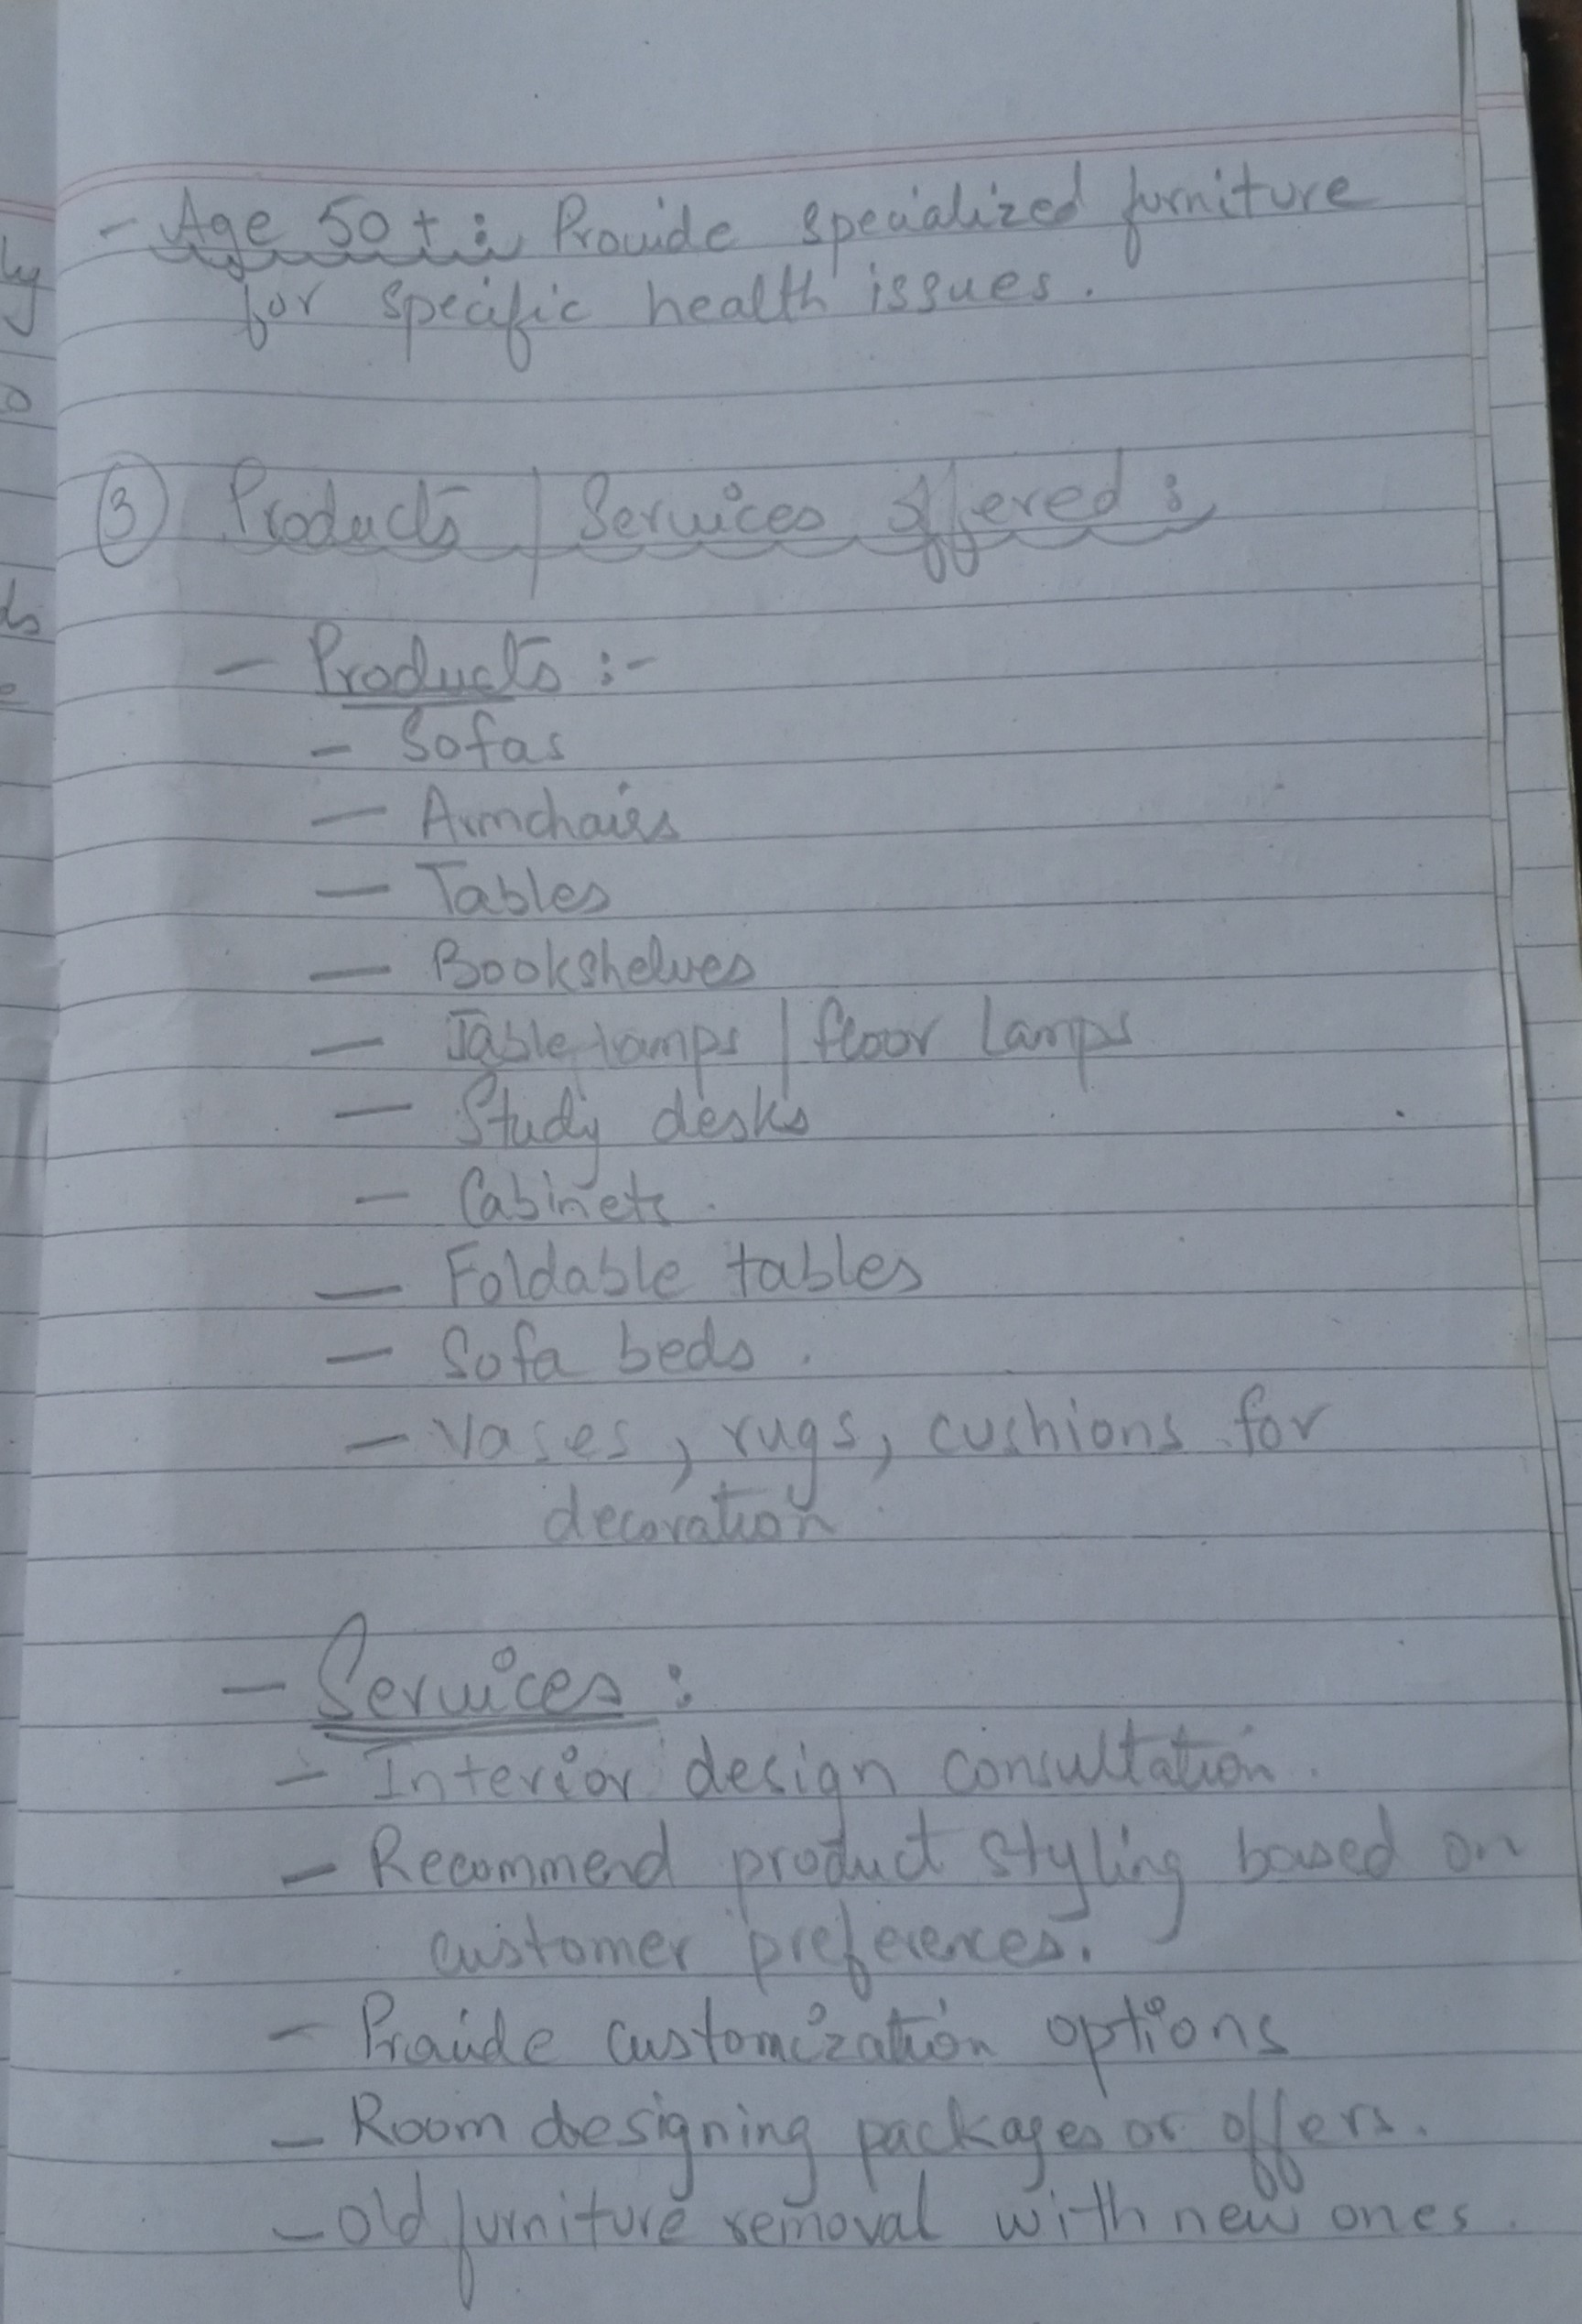 - Age 50+ : Provide specialized furniture
for specific health issues.
③ Products / Services offered :
- Products :-
- Sofas
- Armchairs
- Tables
- Bookshelves
- Table lamps / floor lamps
- Study desks
- Cabinets.
- Foldable tables
- Sofa beds.
- Vases, rugs, cushions for
decoration.
- Services :
- Interior design consultation.
- Recommend product styling based on
customer preferences.
- Provide customization options
- Room designing packages or offers.
- old furniture removal with new ones.